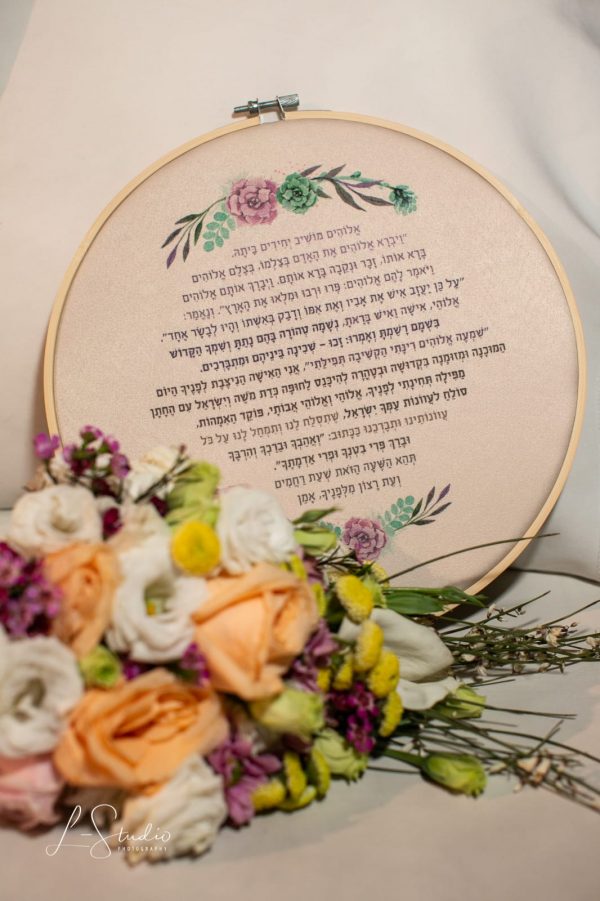 אֱלוֹהִים מוֹשִׁיב יְחִידִים בַּיְתָה,
"וַיִּבְרָא אֱלוֹהִים אֶת הָאָדָם בְּצַלְמוֹ, בְּצֶלֶם אֱלוֹהִים
בָּרָא אוֹתוֹ, זָכָר וּנְקֵבָה בָּרָא אוֹתָם. וַיְבָרֶךְ אוֹתָם אֱלוֹהִים
וַיֹּאמֶר לָהֶם אֱלוֹהִים: פְּרוּ וּרְבוּ וּמִלְאוּ אֶת הָאָרֶץ". וְנֶאֱמַר:
"עַל כֵּן יַעֲזָב אִישׁ אֶת אָבִיו וְאֶת אִמּוֹ וְדָבַק בְּאִשְׁתּוֹ וְהָיוּ לְבָשָׂר אֶחָד".
אֱלוֹהַי, אִישָׁה וְאִישׁ בָּרָאתָ, נְשָׁמָה טְהוֹרָה בָּהֶם נָתַתָּ וְשִׁמְךָ הַקָּדוֹשׁ
בִּשְׁמָם רָשַׁמְתָּ וְאָמְרוּ: זָכוּ – שְׁכִינָה בֵּינֵיהֶם וּמִתְבָּרְכִים.
"שִׁמְעָה אֱלוֹהִים רִינָּתִי הַקְשִׁיבָה תְּפִילָּתִי". אֲנִי הָאִישָׁה הַנִּיצֶּבֶת לְפָנֶיךָ הַיּוֹם
הַמּוּכָנָה וּמְזוּמֶּנֶת בִּקְדוּשָּׁה וּבְטָהֳרָה לְהִיכָּנֵס לַחוּפָּה כְּדַת מֹשֶׁה וְיִשְׂרָאֵל עִם הֶחָתָן
מַפִּילָה תְּחִינָּתִי לְפָנֶיךָ, אֱלוֹהַי וֵאלוֹהֵי אֲבוֹתַי, פּוֹקֵד הָאִמָּהוֹת,
סוֹלֵחַ לַעֲווֹנוֹת עַמְּךָ יִשְׂרָאֵל, שֶׁתִּסְלַח לָנוּ וְתִמְחַל לָנוּ עַל כֹּל
עֲוֹנוֹתֵינוּ וּתְבָרְכֵנוּ כַּכָּתוּב: "וַאֲהֵבְךָ וּבֵרַכְךָ וְהִרְבֶּךָ
וּבֵרַךְ פְּרִי בִטְנְךָ וּפְרִי אַדְמָתֶךָ".
תְּהֵא הַשָּׁעָה הַזֹּאת שְׁעַת רַחֲמִים
וְעֵת רָצוֹן מִלְּפָנֶיךָ, אָמֵן
L-Studio
PHOTOGRAPHY